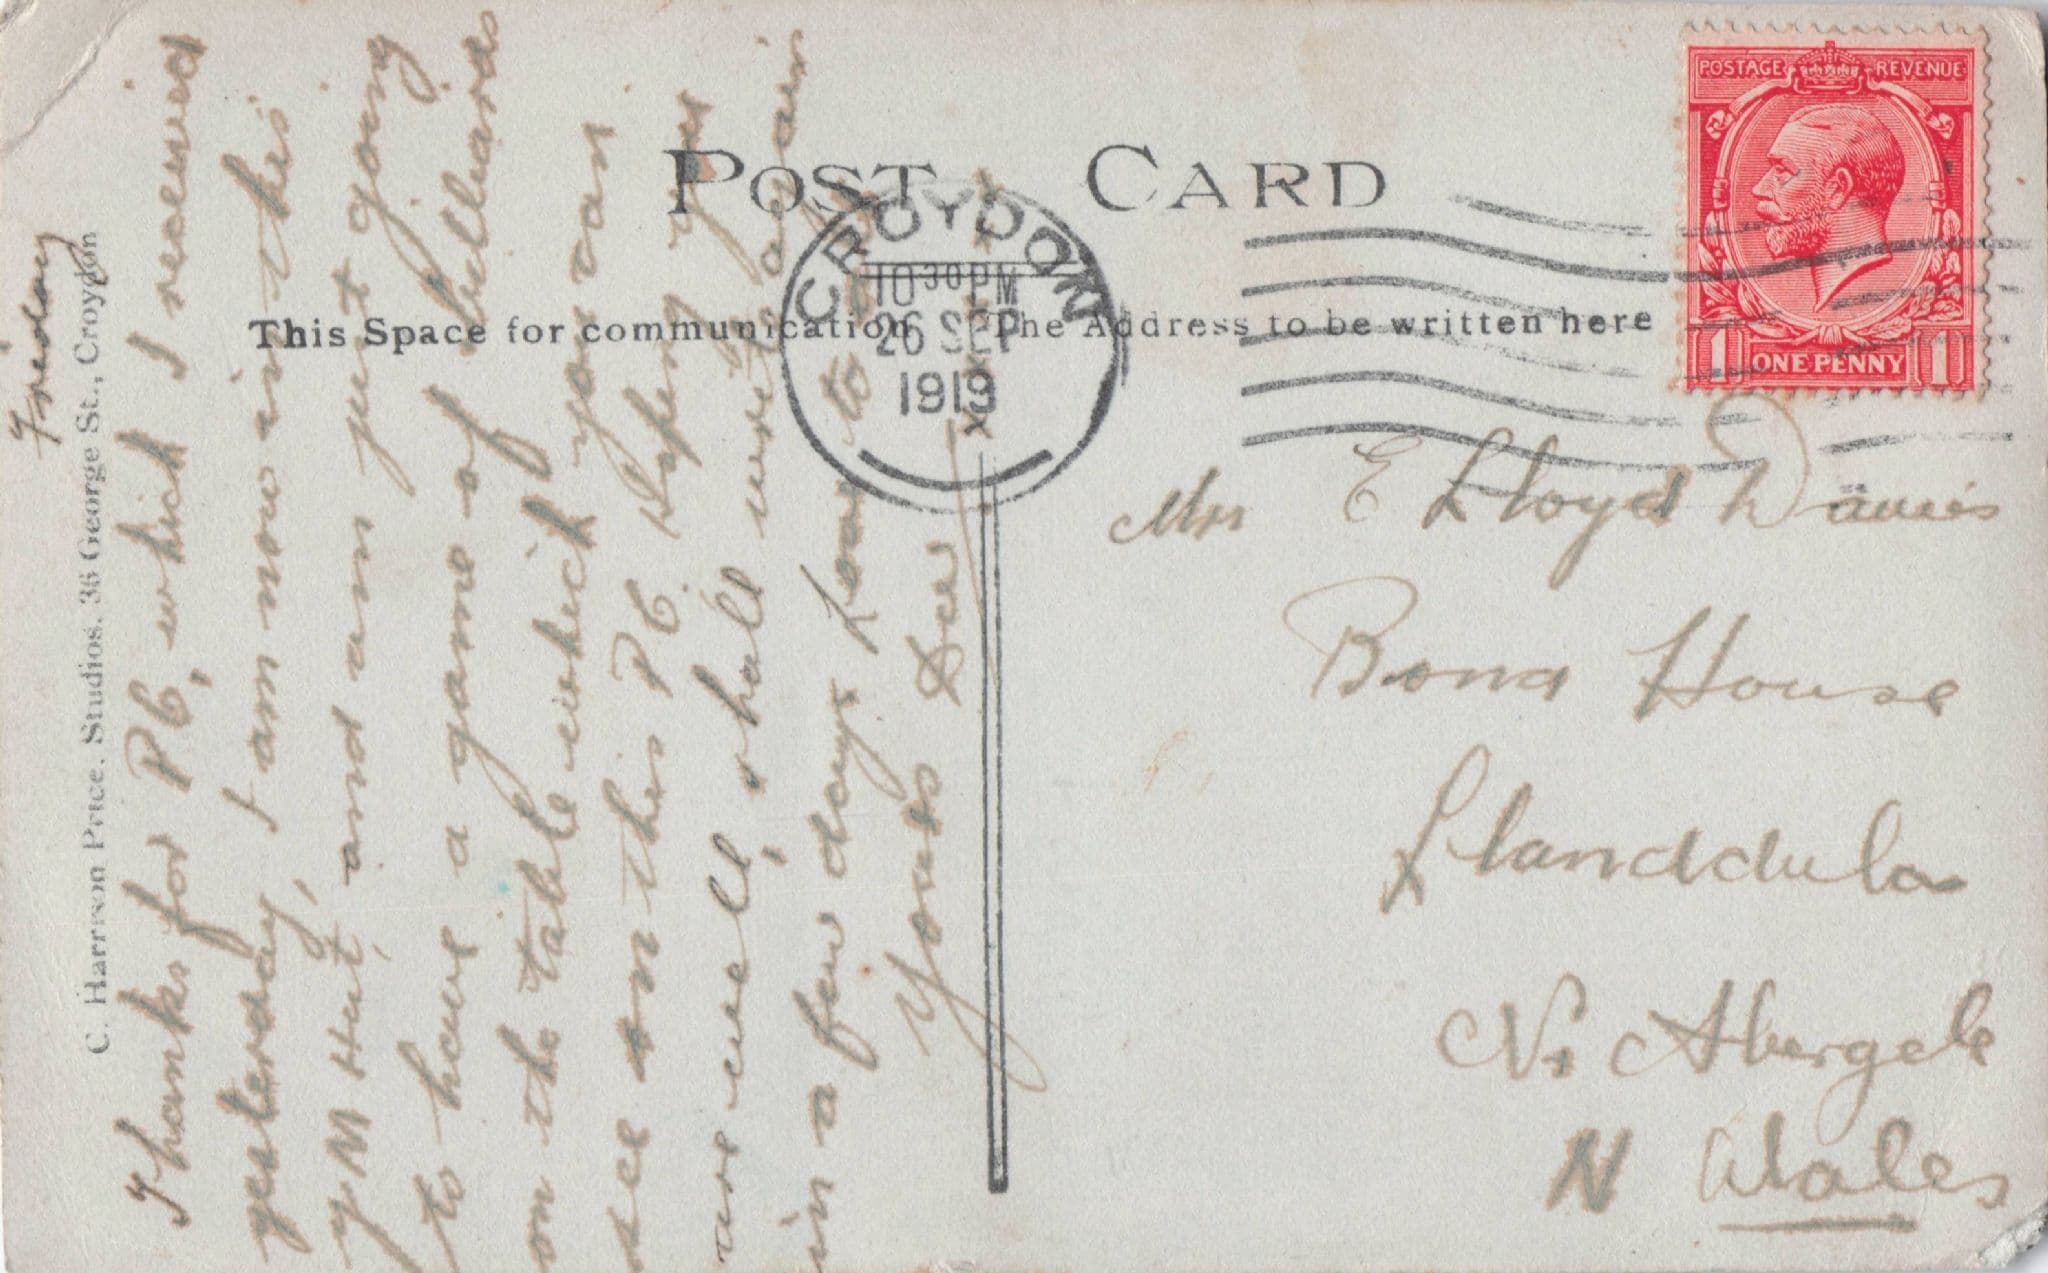 POST CARD
This Space for communication
The Address to be written here
POSTAGE REVENUE
1 ONE PENNY 1
CROYDON
10 30 PM
26 SEP
1919
C. Harrison Price, Studios, 36 George St., Croydon
Friday
Thanks for PC, which I received
yesterday, I am now in this
YM Hut, and am just going
to have a game of billiards
on the table which you can
see on this PC. Hoping you
are well, shall write again
in a few days Love to
Yours
xxx
Mrs E Lloyd Davies
Bona House
Llanddulas
Nr Abergele
N Wales